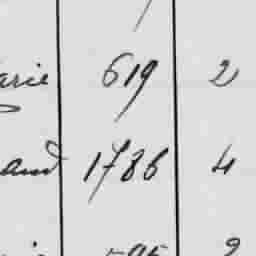 arie 619 2
and 1786 4